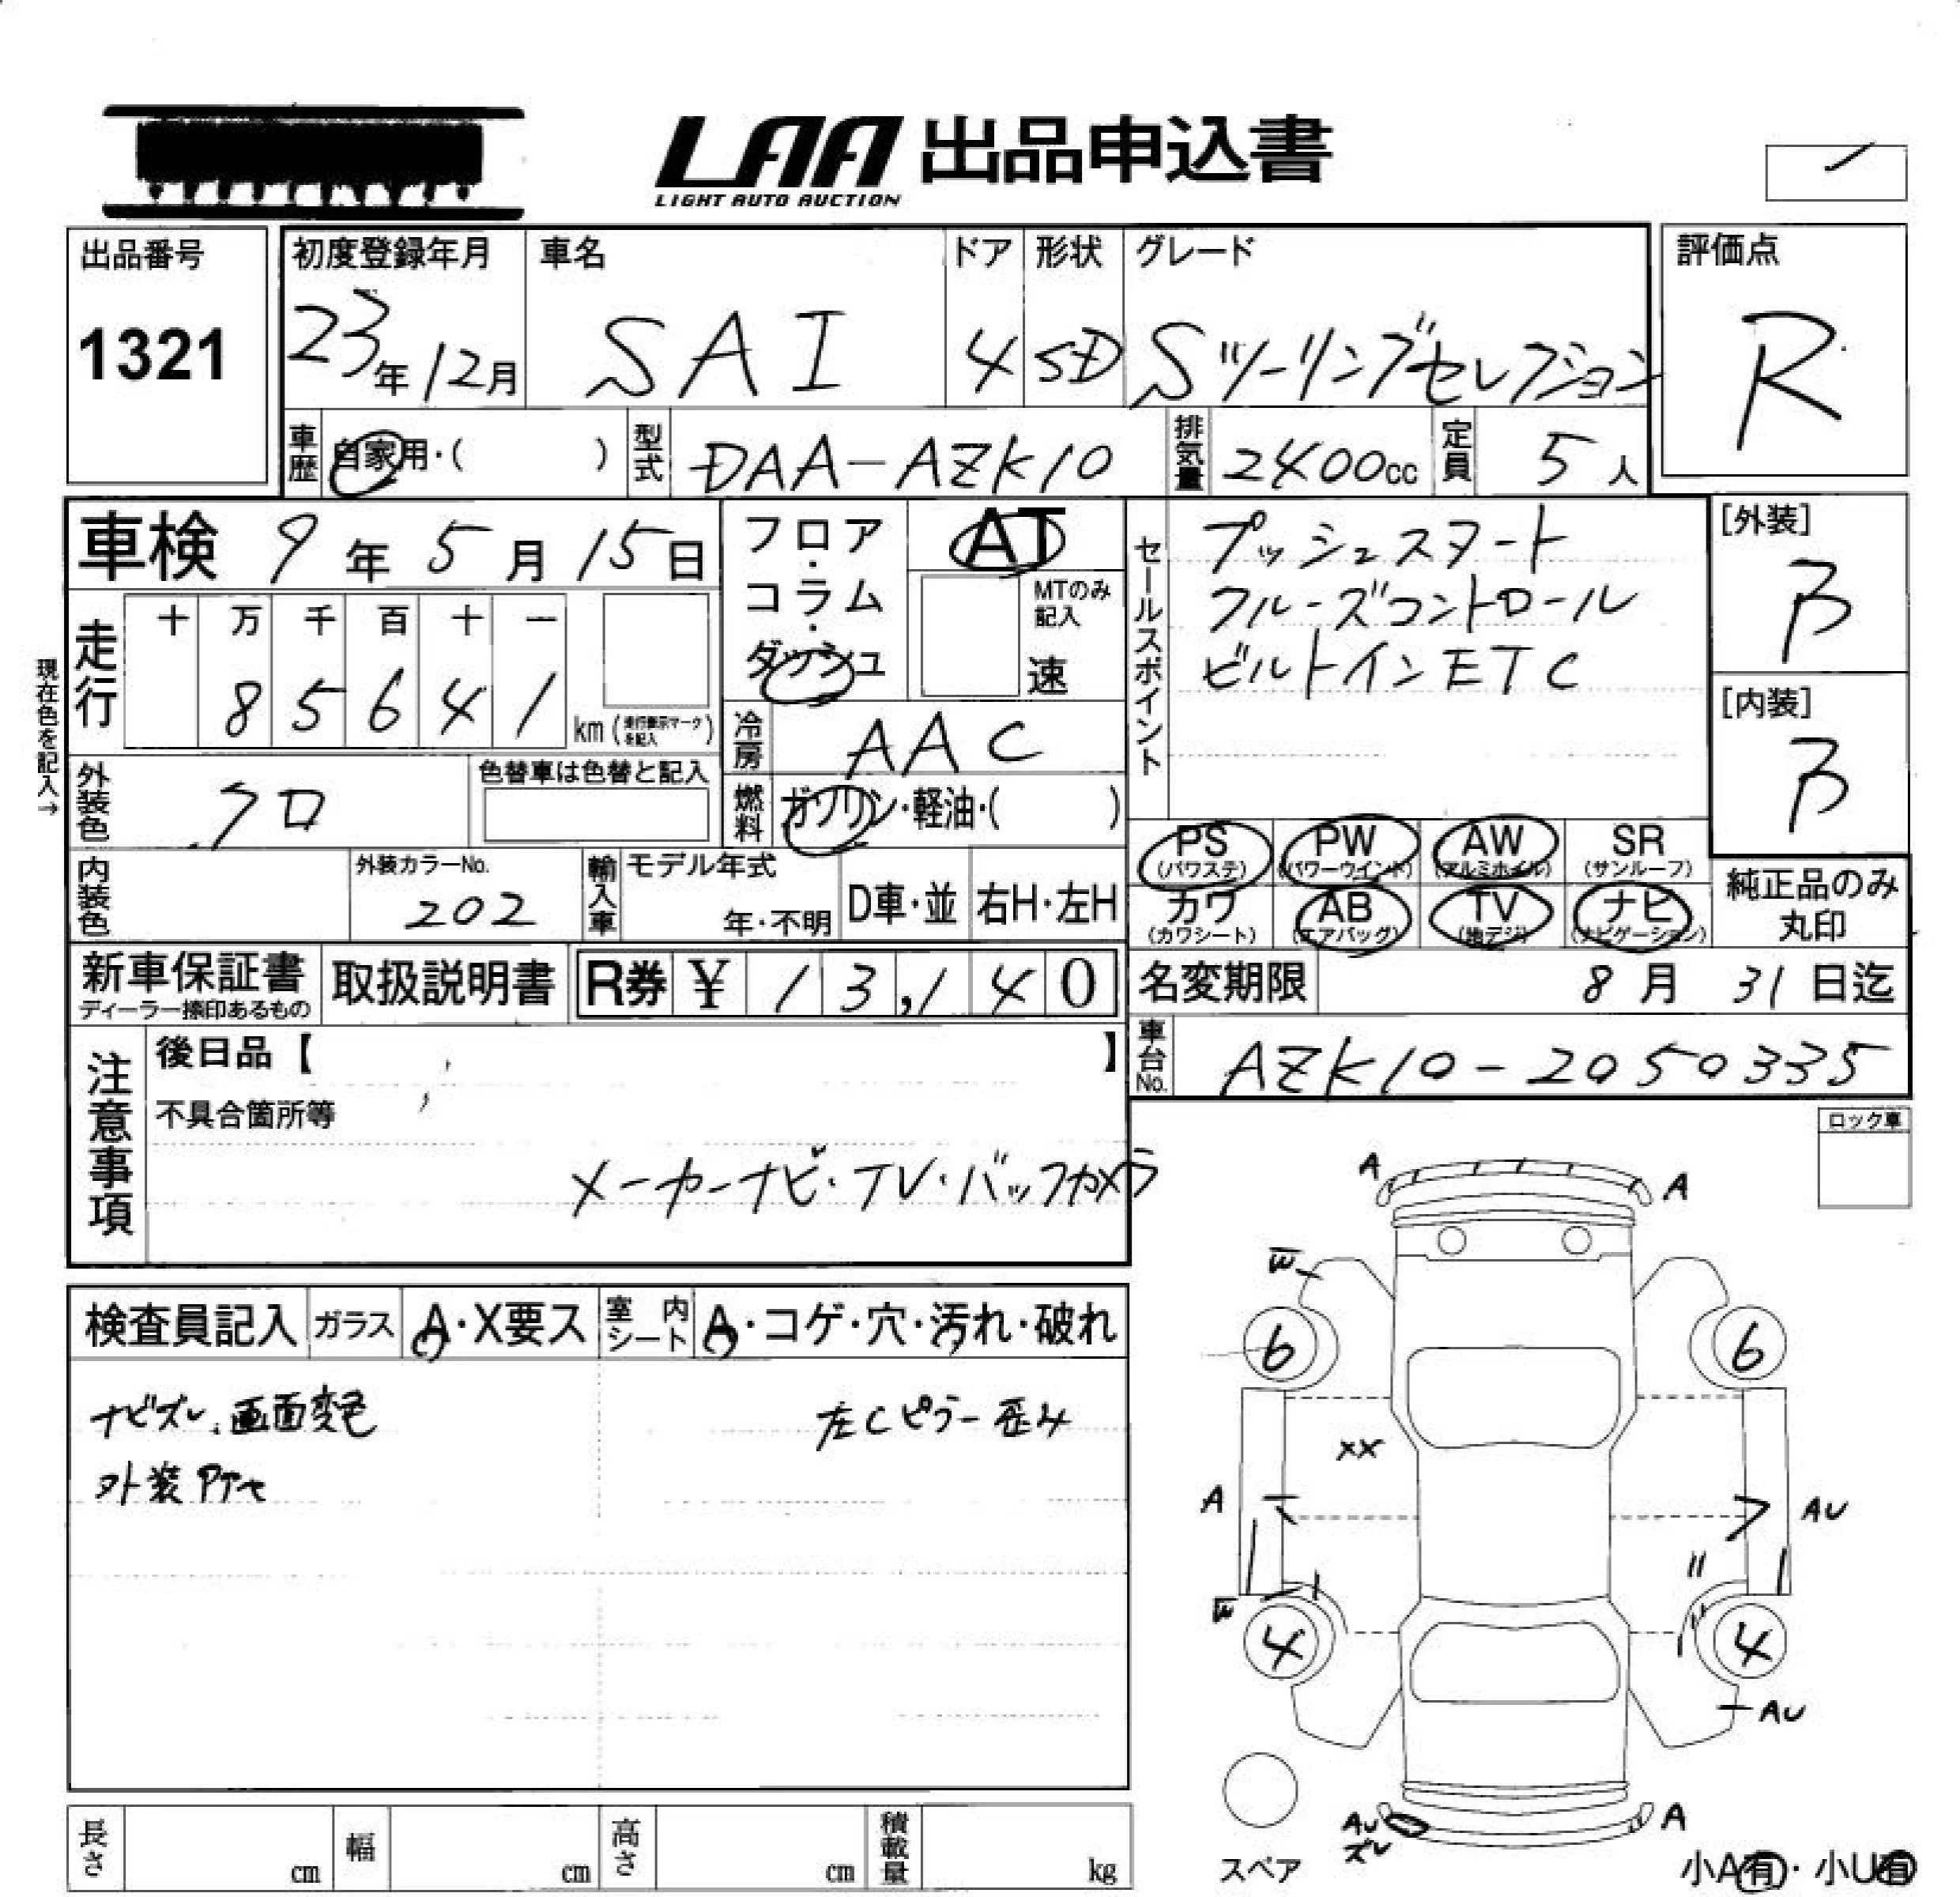 LAA 出品申込書
LIGHT AUTO AUCTION
出品番号
1321
初度登録年月
23年12月
車名
SAI
ドア
4
形状
SD
グレード
Sツーリングセレクション
評価点
R
車歴 自家用・( )
型式 DAA-AZK10
排気量 2400cc
定員 5人
車検 9年5月15日
フロア・コラム・ダッシュ
AT
MTのみ記入
速
セールスポイント
プッシュスタート
クルーズコントロール
ビルトインETC
[外装]
B
[内装]
B
現在色を記入→
走行
十 万 千 百 十 一
8 5 6 4 1 km (走行表示マークを記入)
冷房 AAC
外装色 クロ
色替車は色替と記入
燃料 ガソリン・軽油・( )
PS (パワステ)
PW (パワーウインド)
AW (アルミホイル)
SR (サンルーフ)
カワ (カワシート)
AB (エアバッグ)
TV (地デジ)
ナビ (ナビゲーション)
純正品のみ丸印
内装色
外装カラーNo.
202
輸入車
モデル年式
年・不明
D車・並
右H・左H
新車保証書
ディーラー捺印あるもの
取扱説明書
R券 ¥ 13,140
名変期限 8月31日迄
車台No. AZK10-2050335
注意事項
後日品【 】
不具合箇所等
メーカーナビ・TV・バックカメラ
ロック車
検査員記入
ガラス A・X要ス
室内シート A・コゲ・穴・汚れ・破れ
ナビズレ、画面変色
左Cピラー歪み
A A
W
6 6
XX
A AU
W
4 4
AU
AU
ズレ
A
スペア
小A有・小U有
長さ cm
幅 cm
高さ cm
積載量 kg